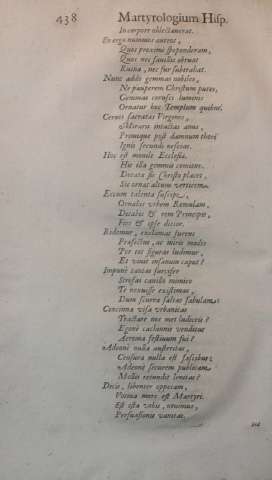 438 Martyrologium Hisp.
In corpore obiectaverat.
En ergo nummos aureos,
Quos proxime spoponderam,
Quos nec favillis obruat
Ruina, nec fur subtrahat.
Nunc addo gemmas nobiles,
Ne pauperem Christum putes,
Gemmas corusci luminis
Ornatur hoc Templum quibus.
Cernis sacratas Virgines,
Miraris intactas anus,
Primique post damnum thori
Ignis secundi nescias.
Hoc est monile Ecclesiæ,
His illa gemmis comitur,
Dotata sic Christo placet,
Sic ornat altum verticem.
Eccum talenta suscipe,
Ornabis urbem Romulam,
Ditabis & rem Principis,
Fies & ipse ditior.
Ridemur, exclamat furens
Præfectus, ac miris modis
Per tot figuras ludimur,
Et vivit insanum caput?
Impune tantas furcifer
Strofas cavillo mimico
Te nexuisse existimas,
Dum scurra saltas fabulam?
Concinna visa urbanitas
Tractare nos met ludicris?
Egone cachinnis venditus
Acroma festivum fui?
Adeone nulla austeritas,
Censura nulla est fascibus?
Adeone securem publicam
Mollis retundit lenitas?
Dicis, libenter oppetam,
Votiva mors est Martyri.
Est ista vobis, novimus,
Persuasionis vanitas.